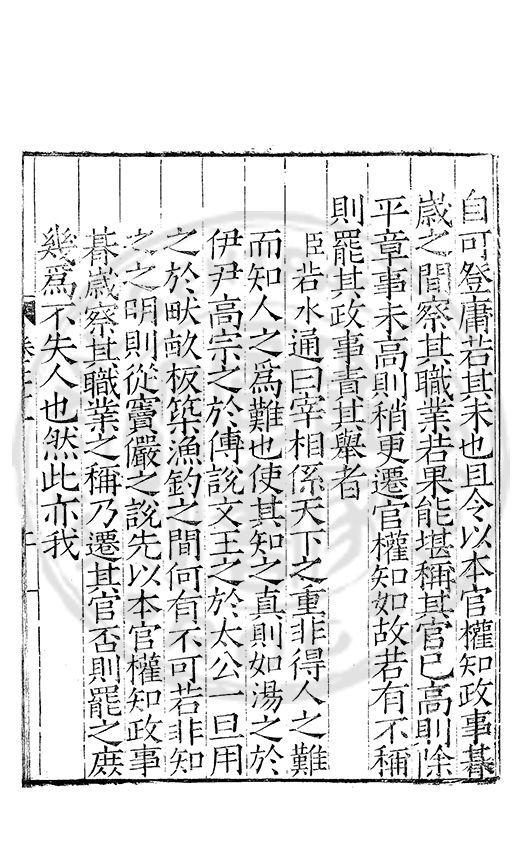 自可登庸若其未也且令以本官權知政事朞
歲之間察其職業若果能堪稱其官已高則除
平章事未高則稍更遷官權知如故若有不稱
則罷其政事責其舉者
臣若水通曰宰相係天下之重非得人之難
而知人之為難也使其知之真則如湯之於
伊尹高宗之於傅說文王之於太公一旦用
之於畎畝板築漁釣之間何有不可若非知
之之明則從竇儼之說先以本官權知政事
朞歲察其職業之稱乃遷其官否則罷之庶
幾為不失人也然此亦我